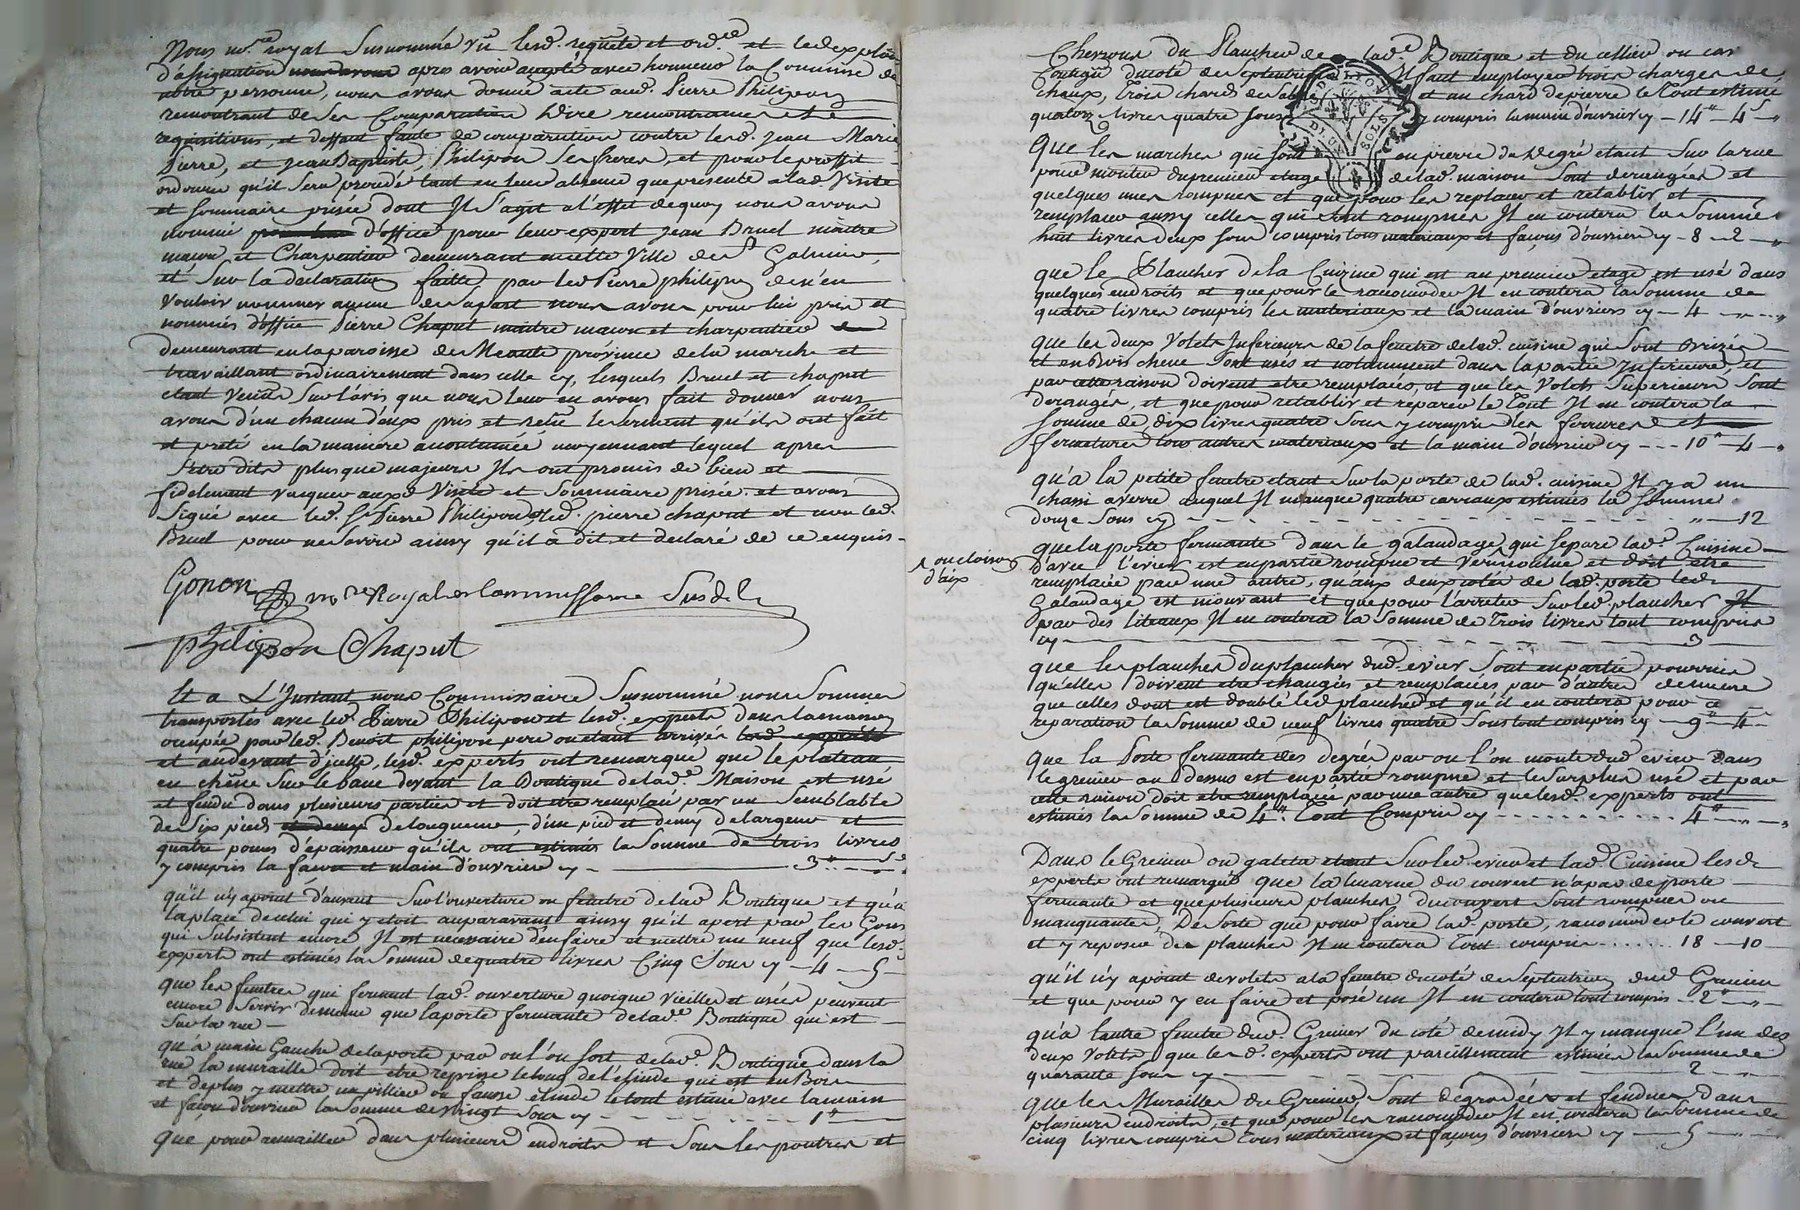 Nous no.re royal Susnommé vû lesd. requete et ord.ce et led. exploit
d'assignation apres avoir accepté avec honneur la Commise de
notre personne, nous avons donné acte aud. Pierre Philipon
remontrant de ses Comparution dire remontrance et
requisitions, et deffaut faute de comparution contre lesd. Jean Marie
Pierre, et Jean Baptiste, Philipon ses freres, et pour le proffit
ordonné qu'il sera procédé tant en leur absence que presence a lad. Visite
et sommaire prisée dont Il s'agit a l'effet de quoy nous avons
nommé d'office pour leur expert Jean Bruel maitre
maçon et Charpentier demeurant en cette Ville de St Galmier,
et sur la declaration faitte par led. Pierre philipon de n'en
Vouloir nommer aucun de sa part nous avons pour lui pris et
nommés d'office Pierre Chaput maitre maçon et charpentier
demeurant en la paroisse de province de la marche et
travaillant ordinairement dans celle cy, lesquels Bruel et chaput
etant Venus Sur l'avis que nous leur en avons fait donner nous
avons d'un chacun d'eux pris et reçu le serment qu'ils ont fait
et preté en la maniere accoutumée moyennant lequel apres
s'etre dits plus que majeurs Ils ont promis de bien et
fidelement vacquer auxd. Visite et Sommaire prisée. et avons
Signé avec led. Sr Pierre Philipon led. pierre chaput et non led.
Bruel pour ne savoir ainsy qu'il a dit et declaré de ce enquis.
Gonon no.re Royal Commissaire Susd.
philipon Chaput
Et a L'Instant nous Commissaire Susnommé nous Sommes
transportés avec led. Pierre Philipon et lesd. experts dans la maison
occupée par led. Benoit philipon pere ou etant arrivés
et au devant d'jcelle, lesd. experts ont remarqué que le plateau
en chêne Sur le banc devant la Boutique de lad.e Maison est usé
et fendu dans plusieurs parties et doit etre remplacé par un Semblable
de Six pieds de longueur, d'un pied et demy de largeur et
quatre pouces d'epaisseur qu'ils ont estimés la Somme de trois livres
y compris la façon et main d'ouvrier cy - 3
qu'il n'y a point d'auvent Sur l'ouverture ou fenetre de lad. Boutique et qu'à
la place de celui qui y etoit auparavant ainsy qu'il apert par les Gons
qui Subsistent encore Il est necessaire d'en faire et mettre un neuf que lesd.
experts ont estimés la Somme de quatre livres Cinq Sous cy - 4 - 5
que les fenetres qui ferment lad. ouverture quoique vieilles et usées peuvent
encore Servir de meme que la porte fermante de lad.e Boutique qui est
Sur la rue -
qu'a main Gauche de la porte par ou l'on Sort de lad.e Boutique dans la
rue la muraille doit etre reprise le long de l' qui est en Bois
et de plus y mettre un pillier ou fausse le tout estimé avec la main
et façon d'ouvrier la Somme de Vingt Sous cy - 1
Que pour remailler dans plusieurs endroits et Sous les poutres et
Chevrons du Plancher de lad.e Boutique et du cellier ou cav
Contigue du coté de Il faut employer trois charges de
chaux, trois chards de Sable et un chard de pierre le Tout estimé
quatorze livres quatre Sous y compris la main d'ouvrier cy - 14 - 4
Que les marches qui Sont en pierre du Degré etant Sur la rue
pour monter au premier etage de lad. maison Sont derangées et
quelques unes rompues et que pour les replacer et retablir et
remplacer aussy celles qui Sont rompues Il en coutera la Somme
huit livres deux Sous compris tous materiaux et façons d'ouvriers cy - 8 - 2
que le Plancher de la Cuizine qui est au premier etage est usé dans
quelques endroits et que pour le racomoder Il en coutera la Somme de
quatre livres compris les materiaux et la main d'ouvriers cy - 4
que les deux Volets Inferieurs de la fenetre de lad. cuisine qui Sont
et en Bois chene Sont usés et notamment dans la partie Inferieure, et
par cette raison doivent etre remplacés, et que les Volets Superieurs Sont
derangés, et que pour retablir et réparer le Tout Il en coutera la
Somme de dix livres quatre Sous y compris les ferrures et
fermeture tous autres materiaux et la main d'ouvrier cy - 10 - 4
qu'à la petite fenetre etant Sur la porte de lad. cuisine Il y a un
chassi a verre auquel Il manque quatre carraux estimés la Somme
douze Sous cy - 12
ou cloison
d'aix
que la porte fermante dans le galandage, qui Separe lad.e Cuisine
d'avec l'evier est en partie rompue et Vermoulue et doit etre
remplacée par une autre, qu'aux deux cotés de lad. porte led.
Galandage est mouvant et que pour l'arreter Sur led. plancher
par des liteaux Il en coutera la Somme de Trois livres tout compris
cy - 3
que les planches du plancher dud. evier Sont en partie pourries
qu'elles doivent etre changées et remplacées par d'autres de meme
que celles dont est doublé led. plancher et qu'il en coutera pour ce
reparation la Somme de neuf livres quatre Sous tout compris cy - 9 - 4
que la Porte fermante des degrés par ou l'on monte dud. evier Dans
le grenier au Dessus est en partie rompue et le Surplus usé et par
cette raison doit etre remplacée par une autre que lesd. experts ont
estimés la Somme de 4 Tout Compris cy - 4
Dans le Grenier ou galetas etant Sur led. evier et lad. Cuisine lesd.
experts ont remarqué que la lucarne du couvert n'a pas de porte
fermante et que plusieurs planches du couvert Sont rompues ou
manquantes, De Sorte que pour faire lad. porte, racomoder le couvert
et y reposer des planches Il en coutera Tout compris - 18 - 10
qu'il n'y a point de volets a la fenetre du coté de Septentrion dud. Grenier
et que pour y en faire et posé un Il en coutera tout compris - 2
qu'à l'autre fenetre dud. Grenier du coté de midy Il y manque l'un des
deux Volets que lesd. experts ont pareillement estimés la Somme de
quarante Sous cy - 2
Que les Murailles du Grenier Sont degradées et fendues Dans
plusieurs endroits, et que pour les racomoder Il en coutera la Somme de
cinq livres compris tous materiaux et façons d'ouvriers cy - 5